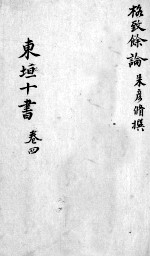 格致餘論 朱彦脩撰
東垣十書 卷四